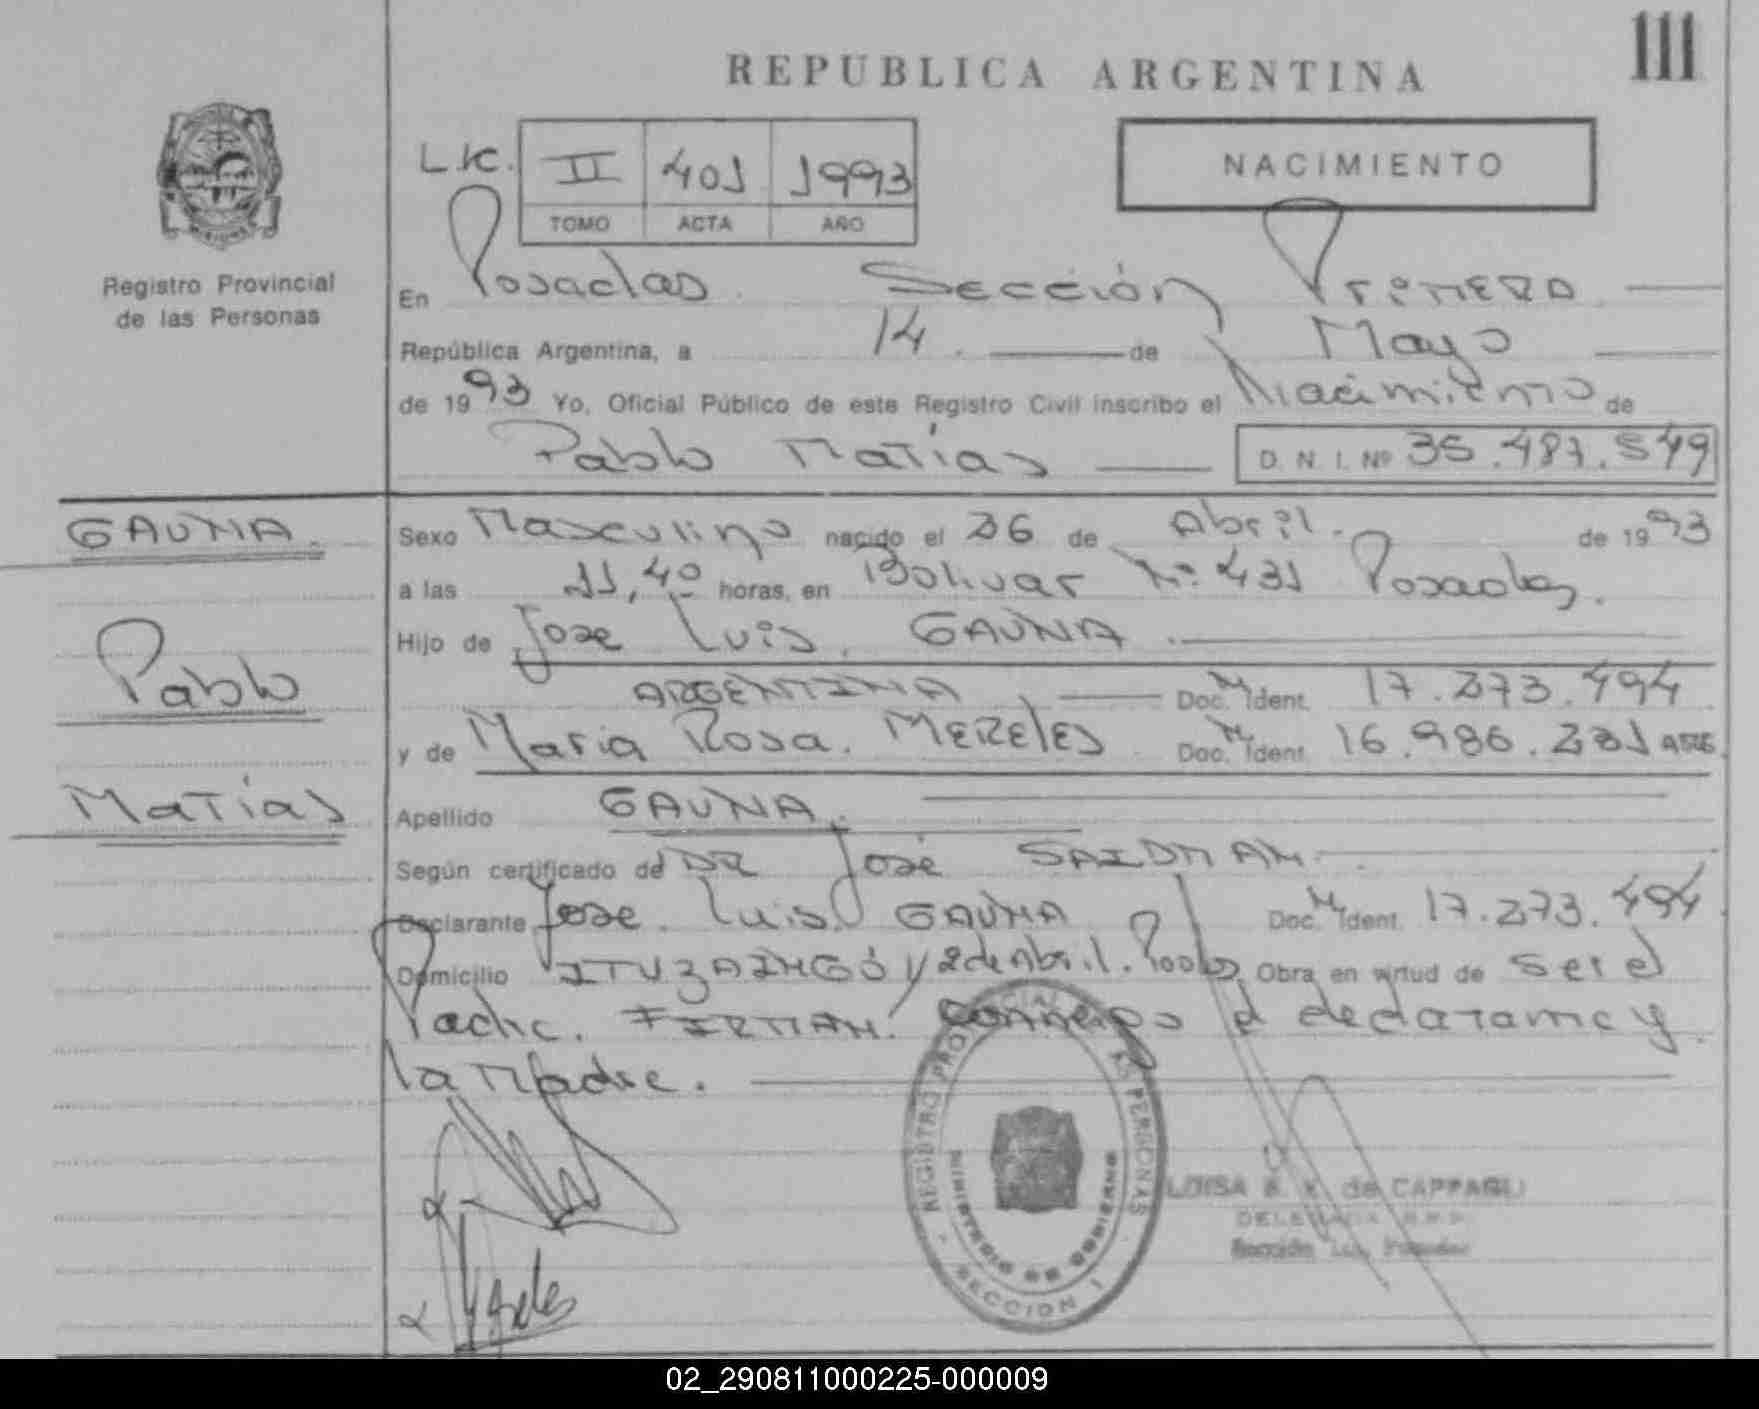 III
REPUBLICA ARGENTINA
L.K. II 401 1993
TOMO ACTA AÑO
NACIMIENTO
Registro Provincial
de las Personas
En Posadas Sección Primera
República Argentina, a 14 de Mayo
de 1993 Yo, Oficial Público de este Registro Civil inscribo el Nacimiento de
Pablo Matías D. N. I. Nº 35.487.549
GAUNA
Pablo
Matías
Sexo Masculino nacido el 26 de Abril de 1993
a las 11,40 horas, en Bolivar Nº 431 Posadas.
Hijo de Jose Luis GAUNA
ARGENTINA Doc. M. Ident. 17.273.494
y de Maria Rosa MERELES Doc. M. Ident. 16.986.231 ARG.
Apellido GAUNA
Según certificado de DR José SAIDMAN
Declarante Jose Luis GAUNA Doc. M. Ident. 17.273.494
Domicilio ITUZAINGÓ y 2 de Abril. Obra en virtud de ser el
Padre. FIRMAN. Conmigo el declarante y
la Madre.
REGISTRO PROVINCIAL DE LAS PERSONAS
MINISTERIO DE GOBIERNO
- SECCION 1
LUISA de CAPPAGLI
DELEGADA R.P.P.
Sección
02_290811000225-000009